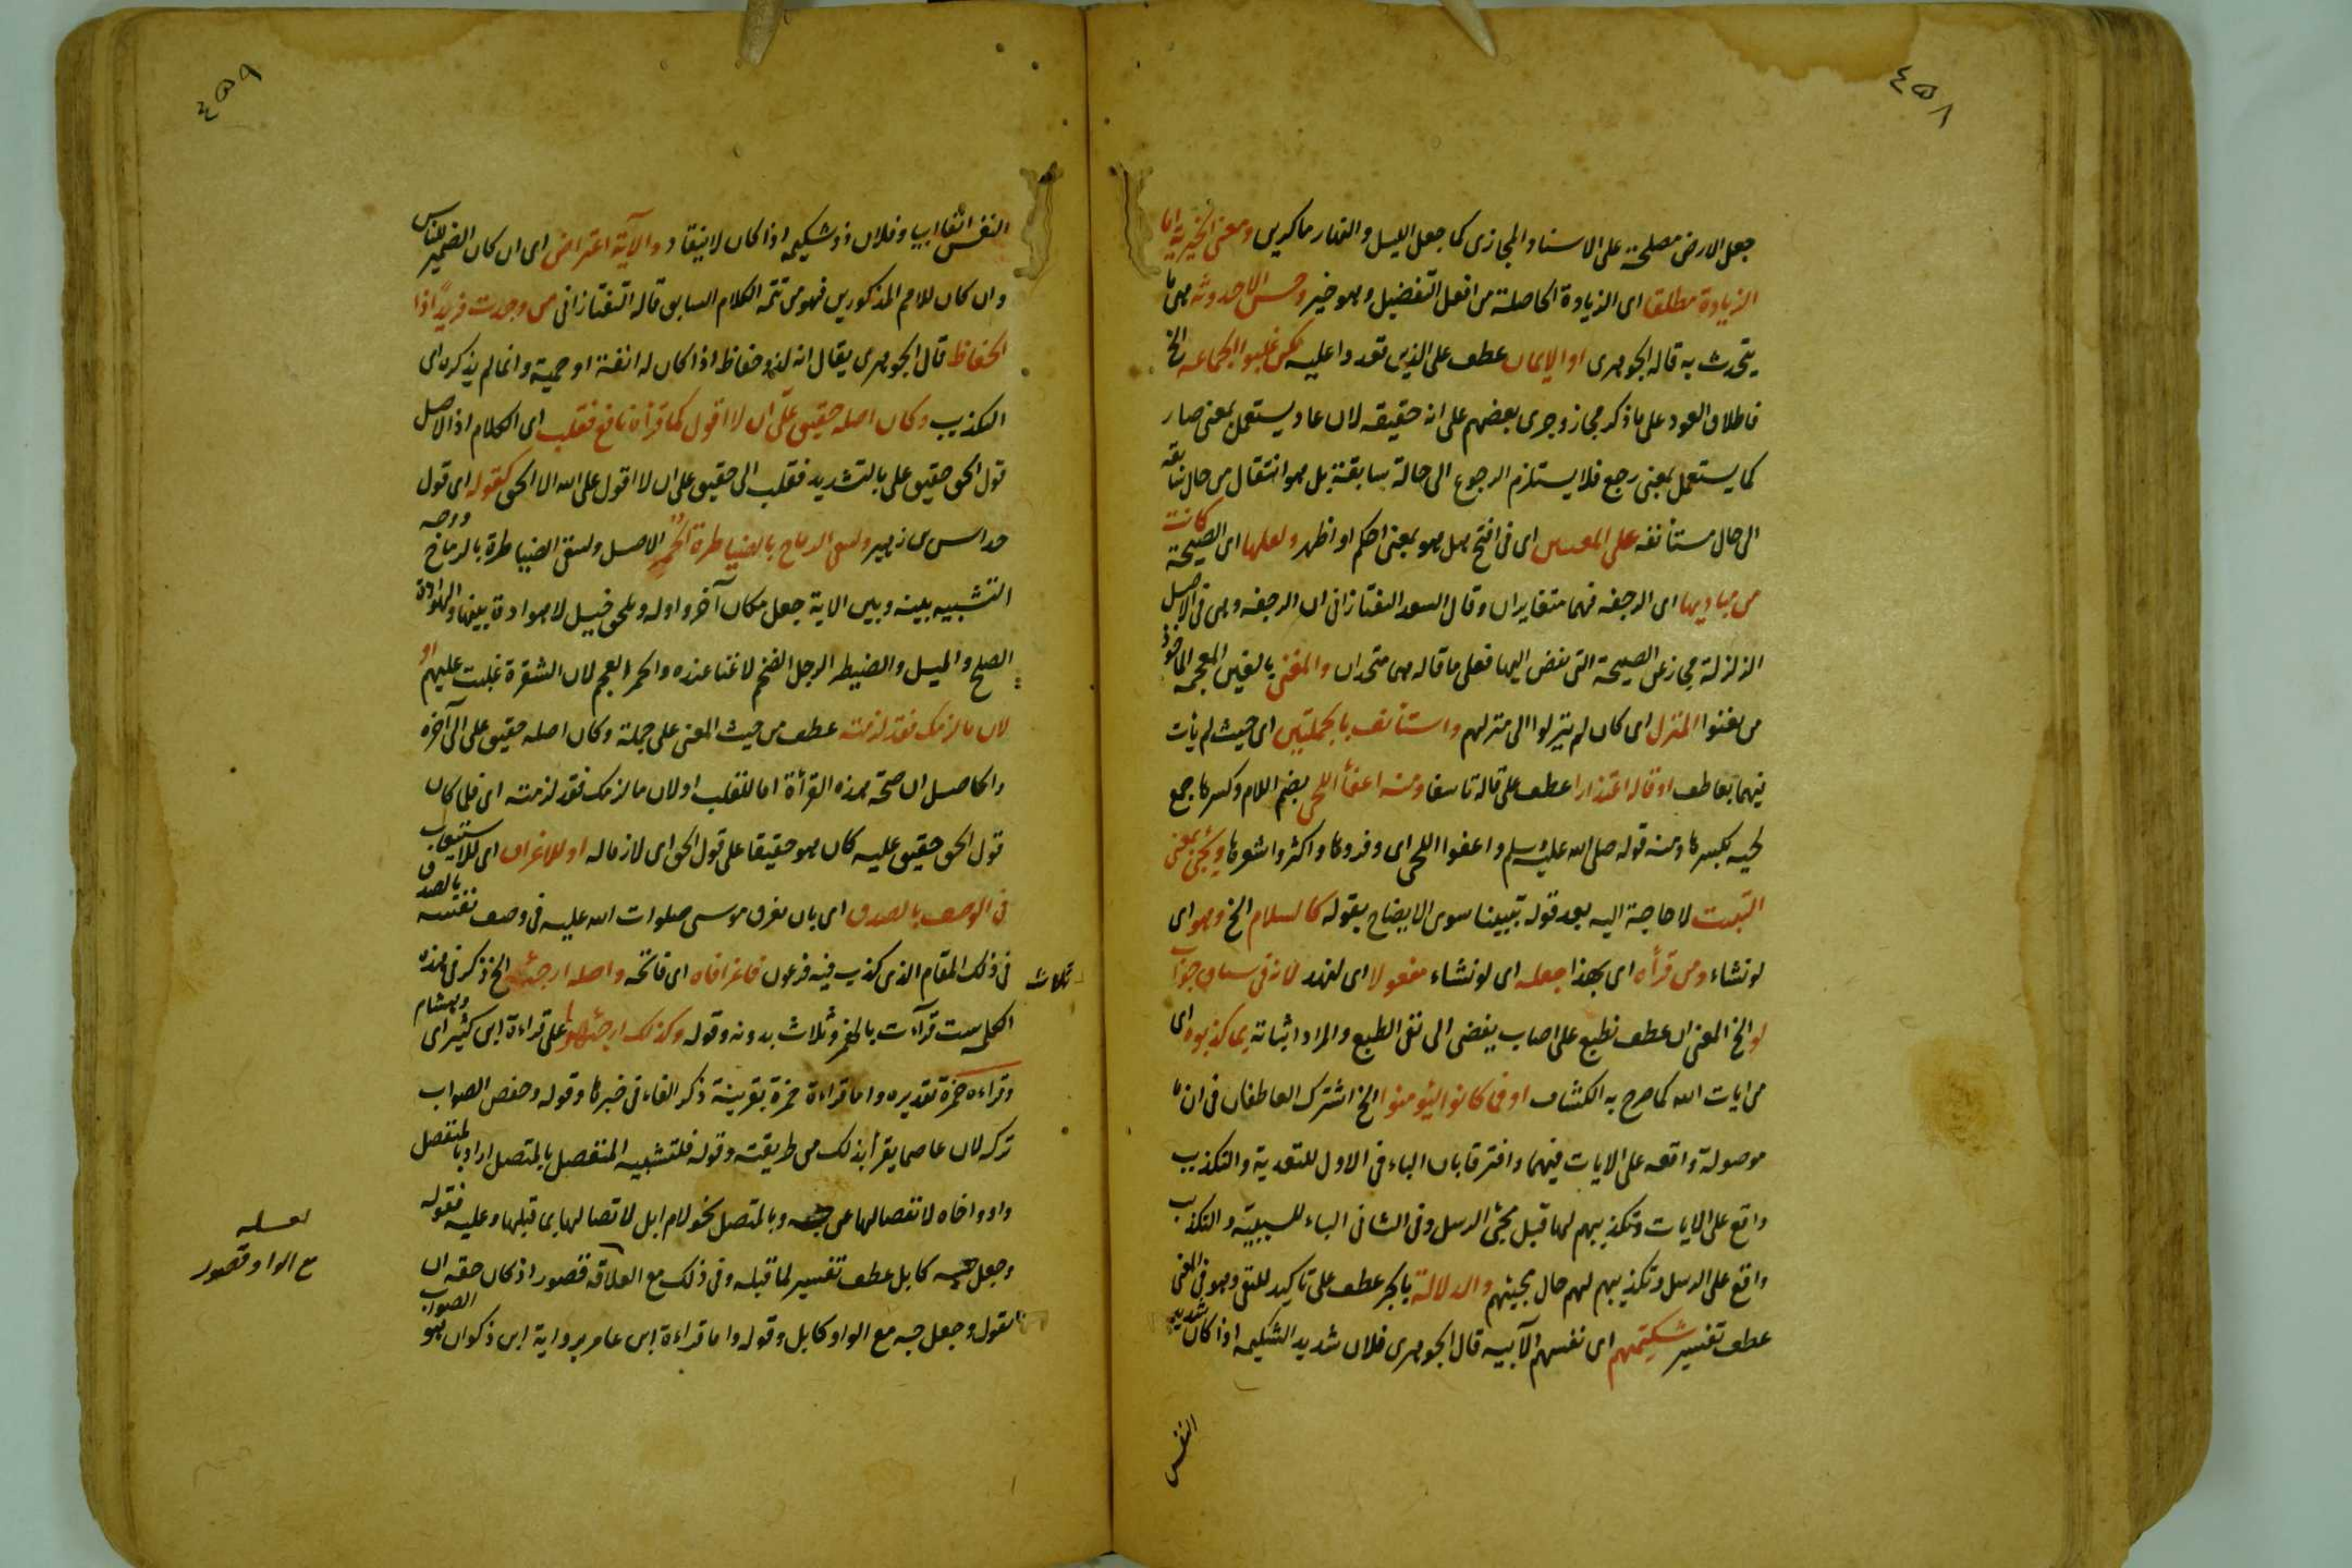 ٤٥٨
جعل الارض مصلحة على الاسناد المجازى كما جعل الليل والنهار ماكرين ومعنى الخيرية اما
الزيادة مطلقا اى الزيادة الحاصلة من افعل التفضيل وهو خير وحسن الاحدوثة هى ما
يتحدث به قاله الجوهرى او الايمان عطف على الذين تعدوا عليه لكن غلبوا الجماعة الخ
فاطلاق العود على ما ذكر مجاز وجرى بعضهم على انه حقيقة لان عاد يستعمل بمعنى صار
كما يستعمل بمعنى رجع فلا يستلزم الرجوع الى حالة سابقة بل هو انتقال من حال سابقة
الى حال مستأنفه على المعنيين اى فى افتح هل هو بمعنى احكم او اظهر ولعلها كانت اى الصيحة
من مباديها اى الرجفه فهما متغايران وقال السعد التفتازانى ان الرجفه وهى فى الاصل
الزلزلة مجاز عن الصيحة التى تفضى اليها فعلى ما قاله هما متحدان والمغنى بالغين المعجمه الماخوذ
من يغنوا المنزل اى كان لم ينزلوا الى منزلهم واستأنف بالجملتين اى حيث لم يأت
فيهما بعاطف او قاله اعتذارا عطف على قاله تاسفا ومنه اعفأ اللحى بضم اللام وكسرها جمع
لحيه بكسرها ومنه قوله صلى الله عليه وسلم واعفوا اللحى اى وفروها واكثروا شعرها ويجئ بمعنى
التبعت لا حاجة اليه بعد قوله تبيينا سوى الايضاح بقوله كالسلام الخ وهو اى
لو نشاء ومن قرأه اى بهذا جعله اى لو نشاء مفعولا اى لنهد لانه فى سياق جواب
لو الخ المعنى ان عطف نطبع على اصاب يفضى الى نفى الطبع والمراد اثباته بما كذبوه اى
من ايات الله كما صرح به الكشاف او فما كانوا ليؤمنوا الخ اشترك العاطفان فى ان ما
موصولة واقعه على الايات فيهما وافترقا بان الباء فى الاول للتعدية والتكذيب
واقع على الايات وتكذيبهم لها قبل مجئ الرسل وفى الثانى الباء للسببية والتكذيب
واقع على الرسل وتكذيبهم لهم حال مجيئهم والدلالة بالجر عطف على تاكيد للنفى وهو فى المعنى
عطف تفسير شكيمتهم اى نفسهم الآبيه قال الجوهرى فلان شديد الشكيمه اذا كان شديد
النفس
٤٥٩
النفس انفا ابيا وفلان ذو شكيمه اذا كان لا ينقاد والآية اعتراض اى ان كان الضمير للناس
وان كان للامم المذكورين فهو من تتمه الكلام السابق قاله التفتازانى من وجدت فزيدا اذا
الحفاظ قال الجوهرى يقال انه لذو حفاظ اذا كان له انفة او حمية وانما لم يذكره اى
التكذيب وكان اصله حقيق علىّ ان لا اقول كما قرأه نافع فقلب اى الكلام اذ الاصل
قول الحق حقيق على بالتشديد فقلب الى حقيق على ان لا اقول على الله الا الحق كقوله اى قول
زهير وتشقى الرماح بالضياطرة الحمر الاصل وتشقى الضياطرة بالرماح ووجه
التشبيه بينه وبين الاية جعل مكان آخر واوله وتلحق خيل لا هوادة بينها والهوادة
الصلح والميل والضيطر الرجل الضخم لا غنا عنده والحمر العجم لان الشقرة غلبت عليهم او
لان ما لزمك فقد لزمته عطف من حيث المعنى على جملة وكان اصله حقيق على الى آخره
والحاصل ان صحة هذه القرأة اما للقلب او لان ما لزمك فقد لزمته اى فلما كان
قول الحق حقيق عليه كان هو حقيقا على قول الحق اى لازما له او للاغراق اى للاستيعاب
فى الوصف بالصدق اى بان يغرق موسى صلوات الله عليه فى وصف نفسه بالصدق
فى ذلك المقام الذى كذب فيه فرعون فاغرا فاه اى فاتحه واصله ارجئه الخ ذكر فى هذه
ثلاث
الكلمه ست قرآءت بالهمز وثلاث بدونه وقوله وكذلك ارجئهو على قراءة ابن كثير اى وهشام
وقراءه حمزة تقديره واما قراءة حمزة بقرينة ذكر الفاء فى خبرها وقوله وحفص الصواب
تركه لان عاصما يقرأ بذلك من طريقته وقوله فلتشبيه المنفصل بالمتصل اراد بالمنفصل
واو واخاه لانفصالها عن جه وبالمتصل نحو لام ابل لاتصالها بما قبلها وعليه فقوله
وجعل جه كابل عطف تفسير لما قبله وفى ذلك مع العلاقه قصور اذ كان حقه ان
لعله
مع الواو قصور
يقول وجعل جه مع الواو كابل وقوله واما قراءة ابن عامر برواية ابن ذكوان الصواب هو